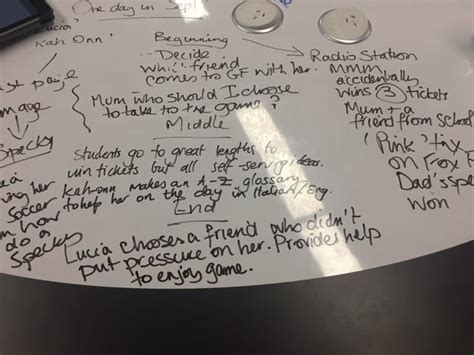 One day in Sept
Lucia
Kah Onn
Beginning
Decide
which friend
comes to GF with her.
Mum who should I choose
to take to the game?
Middle
Students go to great lengths to
win tickets but all self-serving ideas.
Kah-onn makes an A-Z glossary
to help her on the day in Italian/Eng.
End
Lucia chooses a friend who didn't
put pressure on her. Provides help
to enjoy game.
Radio Station
MMM
accidentally
wins 3 tickets
Mum + a
friend from school
'Pink'
on Fox
Dad's
won
page
Image
Specky
her
soccer
how
do a
Specky